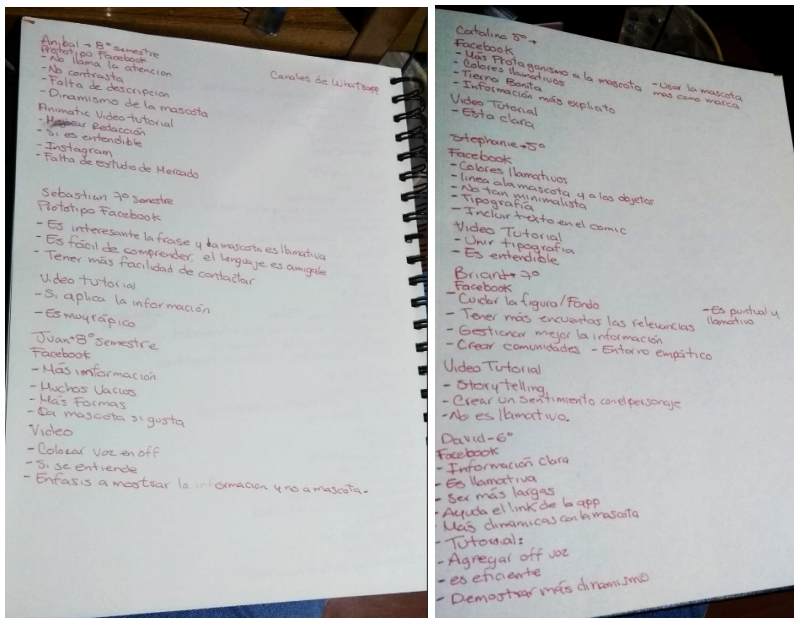 Anibal → 8° semestre
Prototipo Facebook
- No llama la atencion
- No contrasta
- Falta de descripcion
- Dinamismo de la mascota
Canales de Whatsapp
Animatic Video tutorial
- Redacción
- Si es entendible
- Instagram
- Falta de estudio de Mercado
Sebastian 7° semestre
Prototipo Facebook
- Es interesante la frase y la mascota es llamativa
- Es fácil de comprender, el lenguaje es amigable
- Tener más facilidad de contactar
Video tutorial
- Si aplica la información
- Es muy rápico
Juan • 8° semestre
Facebook
- Más información
- Muchos Vacios
- Más Formas
- La mascota si gusta
Video
- Colocar voz en off
- Si se entiende
- Enfasis a mostrar la informacion y no a mascota.
Catalina 5° →
Facebook
- Más Protagonismo a la mascota
- Colores llamativos
- Tierno Bonita
- Información más explicito
- Usar la mascota
más como marca
Video Tutorial
- Esta clara
Stephanie → 5°
Facebook
- Colores llamativos
- linea a la mascota y a los objetos
- No tan minimalista
- Tipografía
- Incluir texto en el comic
Video Tutorial
- Unir tipografia
- Es entendible
Briant → 7°
Facebook
- Cuidar la figura/Fondo
- Tener más encuentas las relevancias
- Gestionar mejor la información
- Crear comunidades - Entorno empático
- Es puntual y
llamativo
Video Tutorial
- Storytelling
- Crear un sentimiento con el personaje
- No es llamativo.
David - 6°
Facebook
- Información clara
- Es llamativa
- Ser más largas
- Ayuda el link de la app
- Más dinamicas con la mascota
- Tutorial:
- Agregar off voz
- es eficiente
- Demostrar más dinamismo